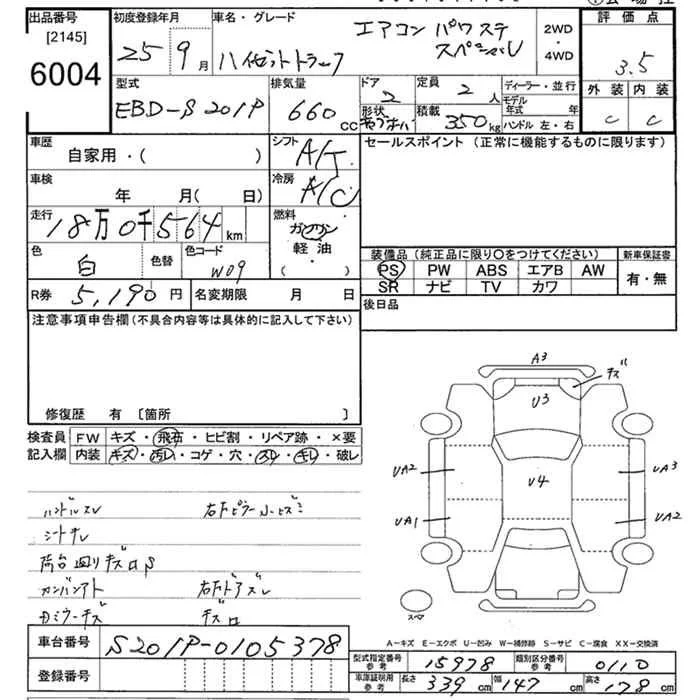 出品番号
[2145]
6004
初度登録年月
25 9月
車名・グレード
ハイゼットトラック
エアコン パワステ
スペシャル
2WD
・
4WD
評価点
3.5
外装 内装
C C
型式
EBD-S201P
排気量
660cc
ドア
2
定員
2人
形状
積載
350kg
ディーラー・並行
モデル年式 年
ハンドル 左・右
車歴
自家用・( )
シフト
A/T
セールスポイント (正常に機能するものに限ります)
車検
年 月( 日)
冷房
A/C
走行
18万0千564km
燃料
ガソリン
軽油
( )
色
白
色替
色コード
W09
装備品 (純正品に限り○をつけてください)
新車保証書
PS PW ABS エアB AW
有・無
SR ナビ TV カワ
R券 5,190円
名変期限 月 日
後日品
注意事項申告欄 (不具合内容等は具体的に記入して下さい)
修復歴 有 [箇所 ]
検査員
記入欄
FW キズ・飛石・ヒビ割・リペア跡・×要
内装 キズ・汚レ・コゲ・穴・スレ・キレ・破レ
ハンドルスレ
シートキレ
荷台廻りキズ
カンバンアト
右ドアズレ
キズ
A3
キズ
U3
UA2
UA3
U4
UA1
UA2
スペア
A-キズ E-エクボ U-凹み W-補修跡 S-サビ C-腐食 XX-交換済
車台番号
S201P-0105378
登録番号
型式指定番号
参考
15978
類別区分番号
参考
0110
車庫証明用
参考
長さ 339cm
幅 147cm
高さ 178cm